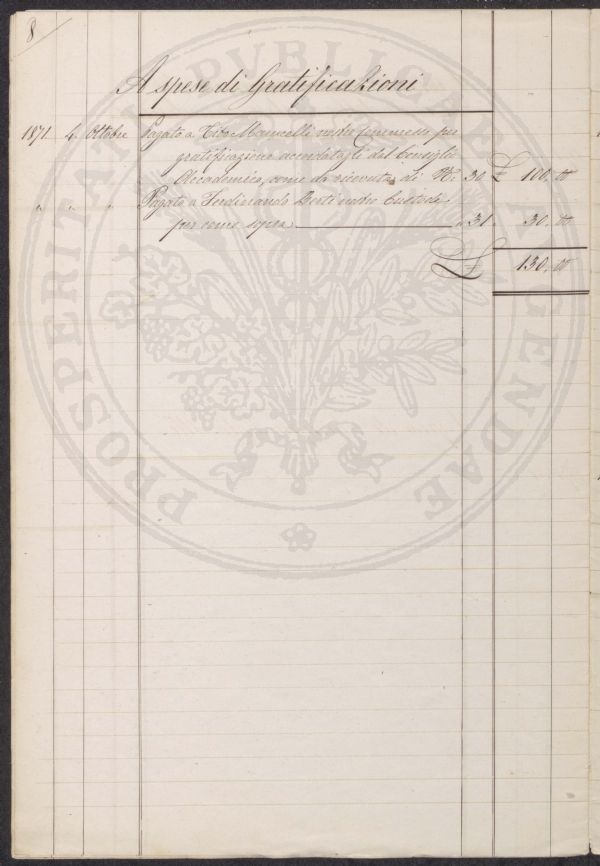 8
A spese di Gratificazioni
1871 4 Ottobre Pagato a Tito Marucelli nostro commesso per
gratificazione accordatagli dal Consiglio
Accademico, come da ricevuta di No: 30 £ 100, 00
" " " Pagato a Ferdinando Berti nostro Custode
per come sopra " 31 " 30, 00
£ 130, 00
PROSPERITATI PVBLICAE AVGENDAE